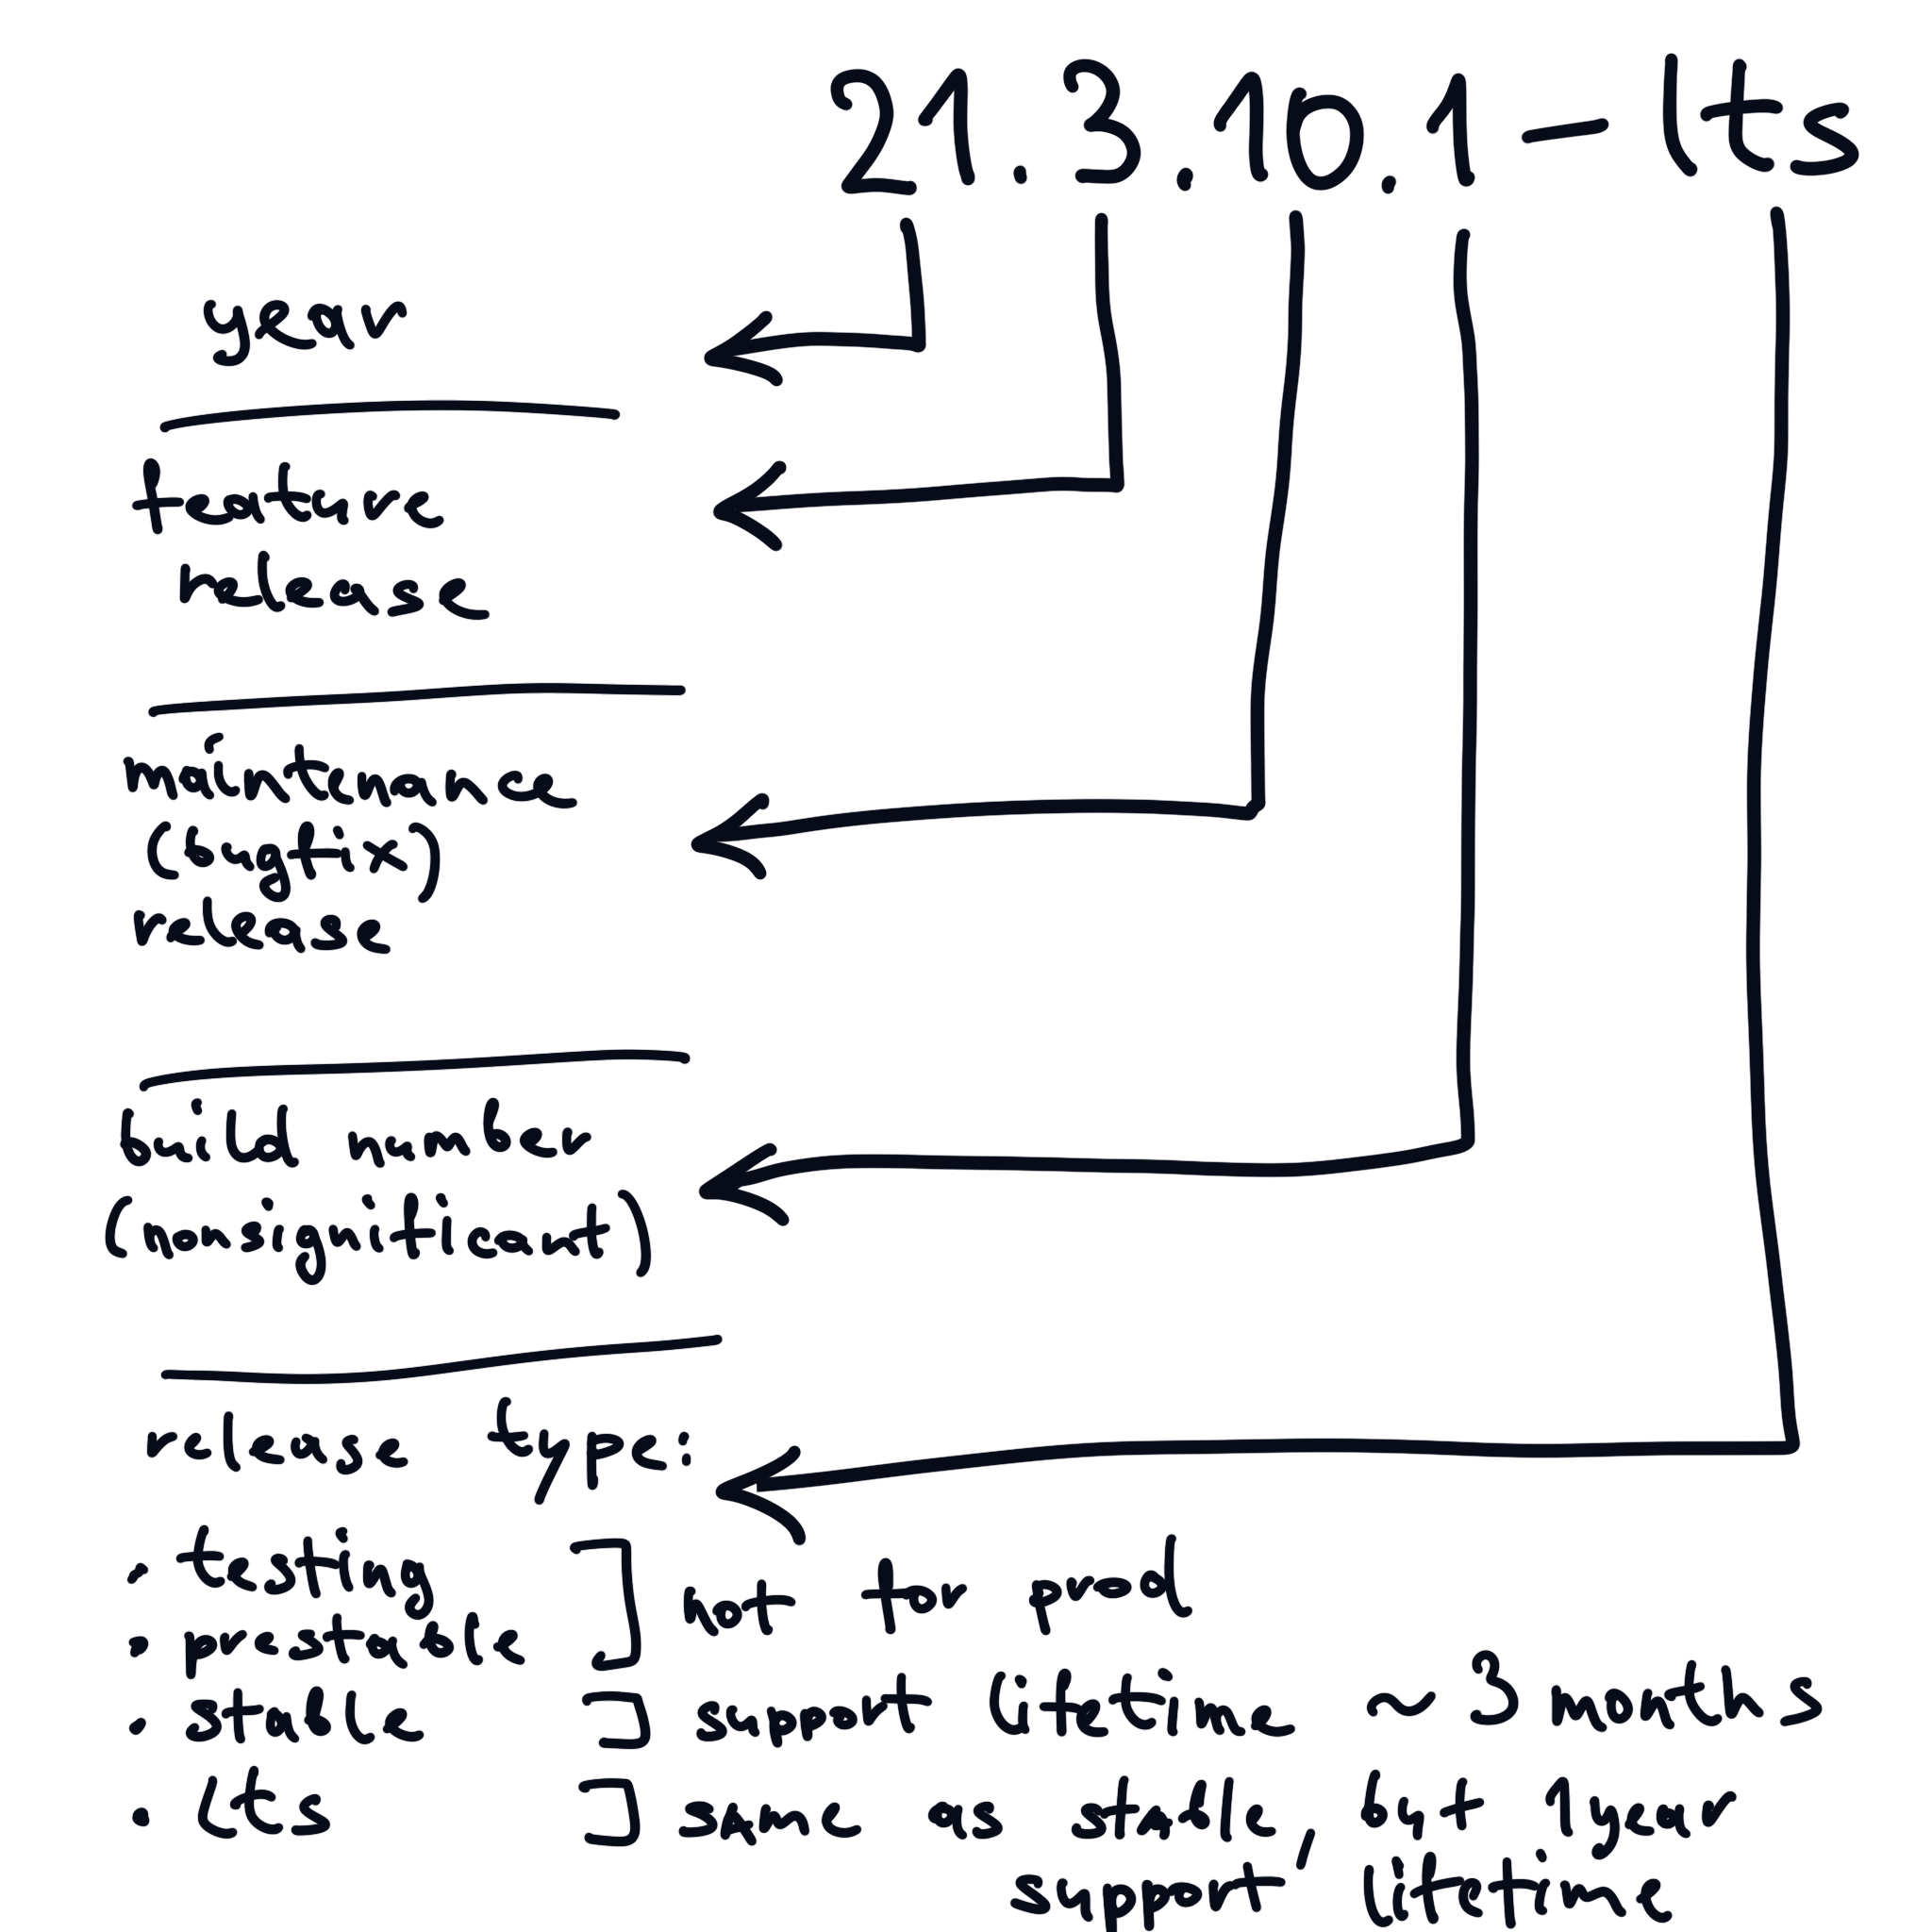 21.3.10.1-lts
year
feature
release
maintenance
(bugfix)
release
build number
(nonsignificant)
release type:
• testing
• prestable
not for prod
• stable
support lifetime ~ 3 months
• lts
same as stable, but 1 year
support lifetime